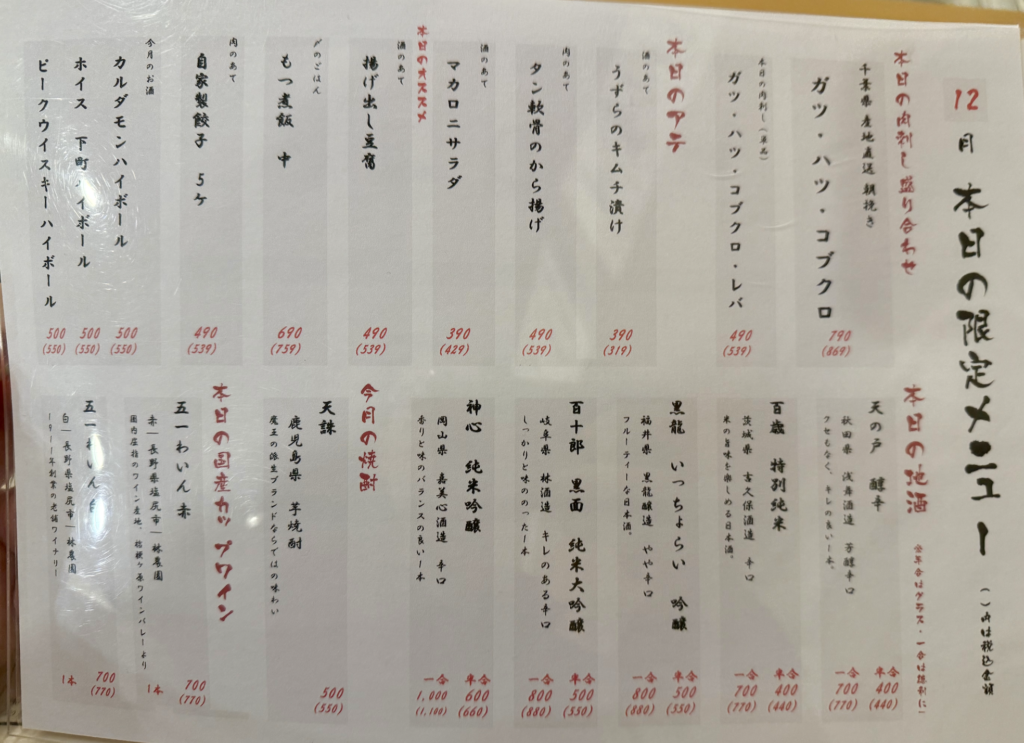 12月 本日の限定メニュー
( )内は税込金額
本日の肉刺し盛り合わせ
千葉県産地直送 朝挽き
ガツ・ハツ・コブクロ
790
(869)
本日の肉刺し(単品)
ガツ・ハツ・コブクロ・レバ
490
(539)
本日のアテ
酒のあて
うずらのキムチ漬け
390
(319)
肉のあて
タン軟骨のから揚げ
490
(539)
酒のあて
マカロニサラダ
390
(429)
本日のオススメ
酒のあて
揚げ出し豆腐
490
(539)
〆のごはん
もつ煮飯 中
690
(759)
肉のあて
自家製餃子 5ケ
490
(539)
今月のお酒
カルダモンハイボール
500
(550)
ホイス 下町ハイボール
500
(550)
ピークウイスキーハイボール
500
(550)
本日の地酒
半合はグラス・一合は徳利に
天の戸 醇辛
秋田県 浅舞酒造 芳醇辛口
クセもなく、キレの良い一本。
半合 400 (440)
一合 700 (770)
百歳 特別純米
茨城県 吉久保酒造 辛口
米の旨味を楽しめる日本酒。
半合 400 (440)
一合 700 (770)
黒龍 いっちょらい 吟醸
福井県 黒龍醸造 やや辛口
フルーティーな日本酒。
半合 500 (550)
一合 800 (880)
百十郎 黒面 純米大吟醸
岐阜県 林酒造 キレのある辛口
しっかりと味ののった一本
半合 500 (550)
一合 800 (880)
神心 純米吟醸
岡山県 嘉美心酒造 辛口
香りと味のバランスの良い一本
半合 600 (660)
一合 1,000 (1,100)
今月の焼酎
天誅
鹿児島県 芋焼酎
魔王の派生ブランドならではの味わい
500
(550)
本日の国産カップワイン
五一わいん 赤
赤|長野県塩尻市|林農園
国内屈指のワイン産地、桔梗ヶ原ワインバレーより
1本 700 (770)
五一わいん 白
白|長野県塩尻市|林農園
1911年創業の老舗ワイナリー
1本 700 (770)